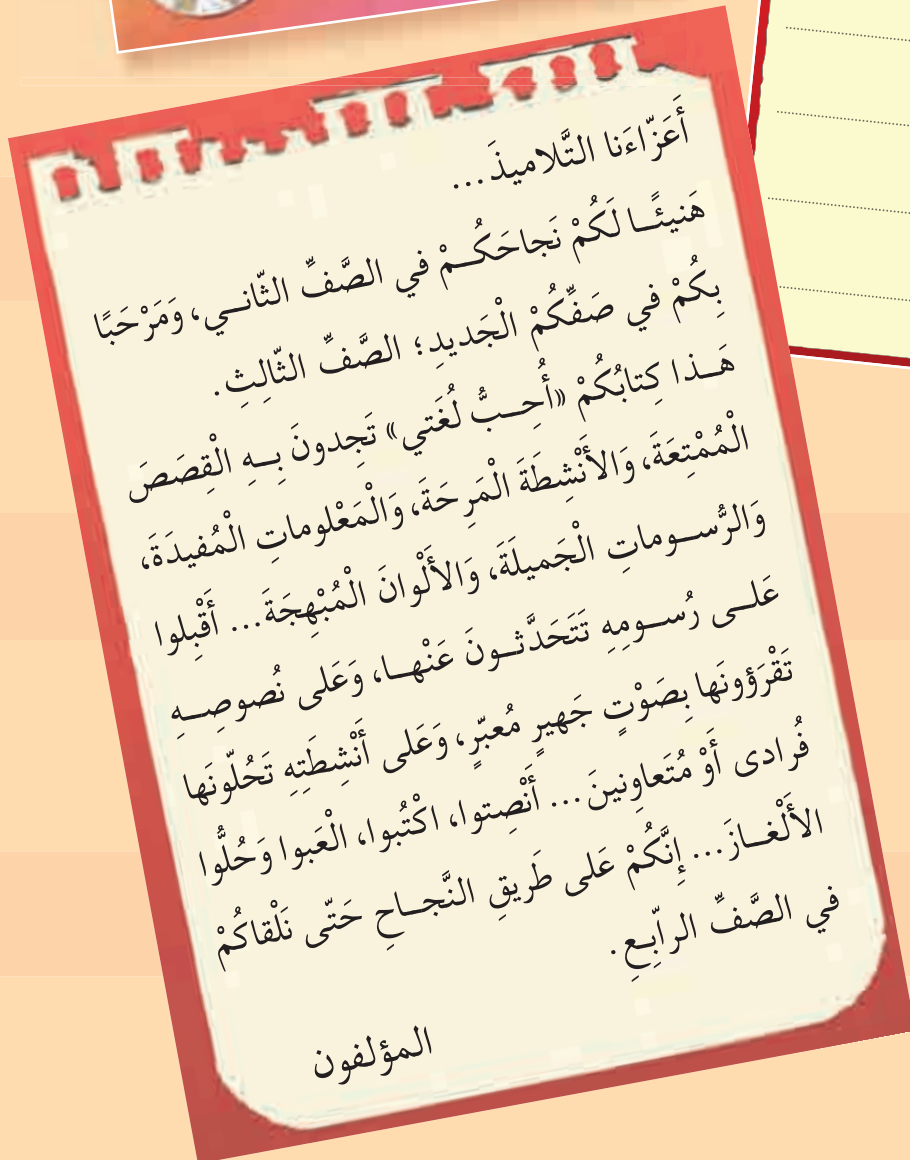 أَعَزّاءَنا التَّلاميذَ...
هَنيئًا لَكُمْ نَجاحَكُمْ في الصَّفِّ الثّاني، وَمَرْحَبًا
بِكُمْ في صَفِّكُمْ الْجَديدِ؛ الصَّفِّ الثّالِثِ.
هَذا كِتابُكُمْ «أُحِبُّ لُغَتي» تَجِدونَ بِهِ الْقِصَصَ
الْمُمْتِعَةَ، وَالأَنْشِطَةَ الْمَرِحَةَ، وَالْمَعْلوماتِ الْمُفيدَةَ،
وَالرُّسوماتِ الْجَميلَةَ، وَالأَلْوانَ الْمُبْهِجَةَ... أَقْبِلوا
عَلى رُسومِهِ تَتَحَدَّثونَ عَنْها، وَعَلى نُصوصِهِ
تَقْرَؤونَها بِصَوْتٍ جَهيرٍ مُعبّرٍ، وَعَلى أَنْشِطَتِهِ تَحُلّونَها
فُرادى أَوْ مُتَعاوِنينَ... أَنْصِتوا، اكْتُبوا، الْعَبوا وَحُلُّوا
الأَلْغازَ... إِنَّكُمْ عَلى طَريقِ النَّجاحِ حَتّى نَلْقاكُمْ
في الصَّفِّ الرّابِعِ.
المؤلفون